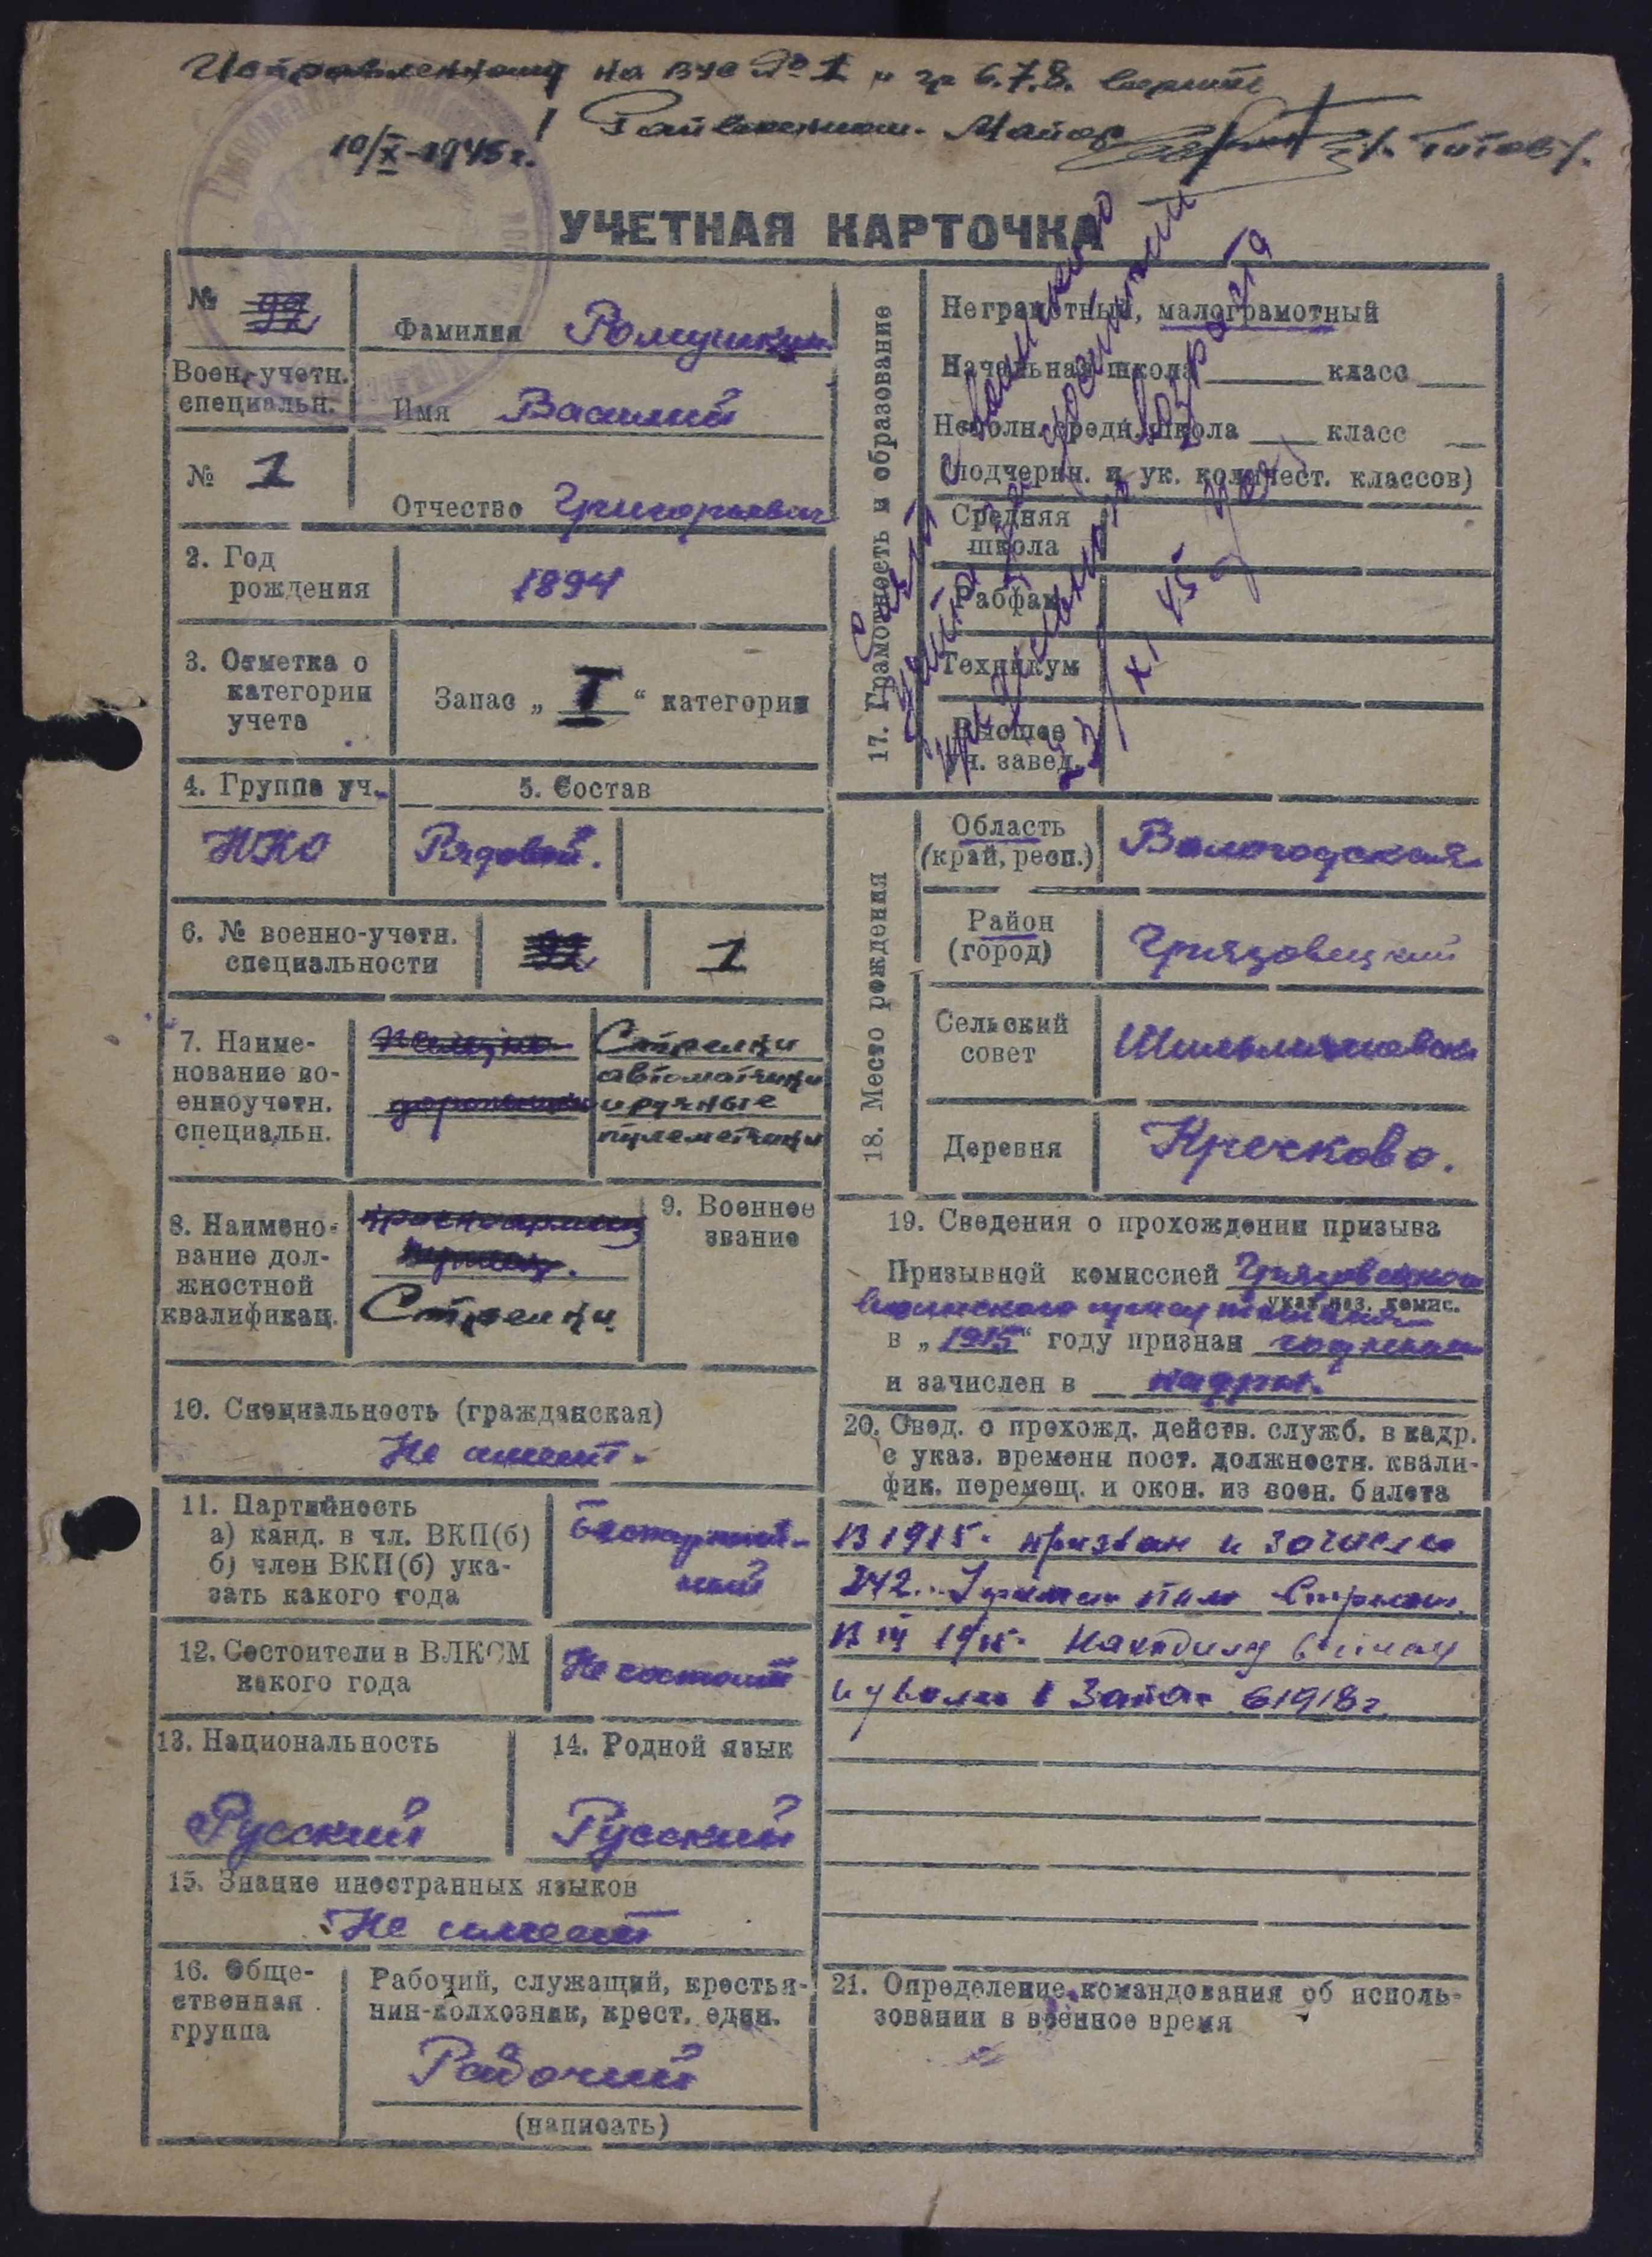 Исправленному на ВУС № 1 и гр 6.7.8. верить
Райвоенком. Майор /Титов/.
10/X-1945 г.
УЧЕТНАЯ КАРТОЧКА
№ 99
Фамилия Ромушкин
Воен.-учетн.
специальн.
Имя Василий
№ 1
Отчество Григорьевич
2. Год
рождения
1894
3. Отметка о
категории
учета
Запас „ I “ категории
4. Группа уч.
5. Состав
НКО
Рядовой.
6. № военно-учетн.
специальности
99
1
7. Наиме-
нование во-
енноучетн.
специальн.
Стрелки
автоматчики
и ручные
пулеметчики
8. Наимено-
вание дол-
жностной
квалификац.
красноармеец
Стрелки
9. Военное
звание
10. Специальность (гражданская)
Не имеет.
11. Партийность
а) канд. в чл. ВКП(б)
б) член ВКП(б) ука-
зать какого года
Беспартий-
ный
12. Состоители в ВЛКСМ
какого года
Не состоит
13. Национальность
Русский
14. Родной язык
Русский
15. Знание иностранных языков
Не имеет
16. Обще-
ственная
группа
Рабочий, служащий, крестья-
нин-колхозник, крест. един.
Рабочий
(написать)
17. Грамотность и образование
Неграмотный, малограмотный
Начальная школа класс
Неполн. средн. школа класс
(подчеркн. и ук. количест. классов)
Средняя
школа
Рабфак
Техникум
Высшее
уч. завед.
Снят с воинского
учета
возраста
23/XI 45 г
18. Место рождения
Область
(край, респ.)
Вологодская
Район
(город)
Грязовецкий
Сельский
совет
Деревня
Кречково.
19. Сведения о прохождении призыва
Призывной комиссией Грязовецкого
указ. наз. комис.
воинского присутствия
в „ 1915 “ году признан годным
и зачислен в кадры.
20. Свед. о прохожд. действ. служб. в кадр.
с указ. времени пост. должностн. квали-
фик. перемещ. и окон. из воен. билета
В 1915. призван и зачислен
242. полк Стрелком.
В 1915. Находился в плену
и уволен в Запас в 1918 г.
21. Определение командования об исполь-
зовании в военное время